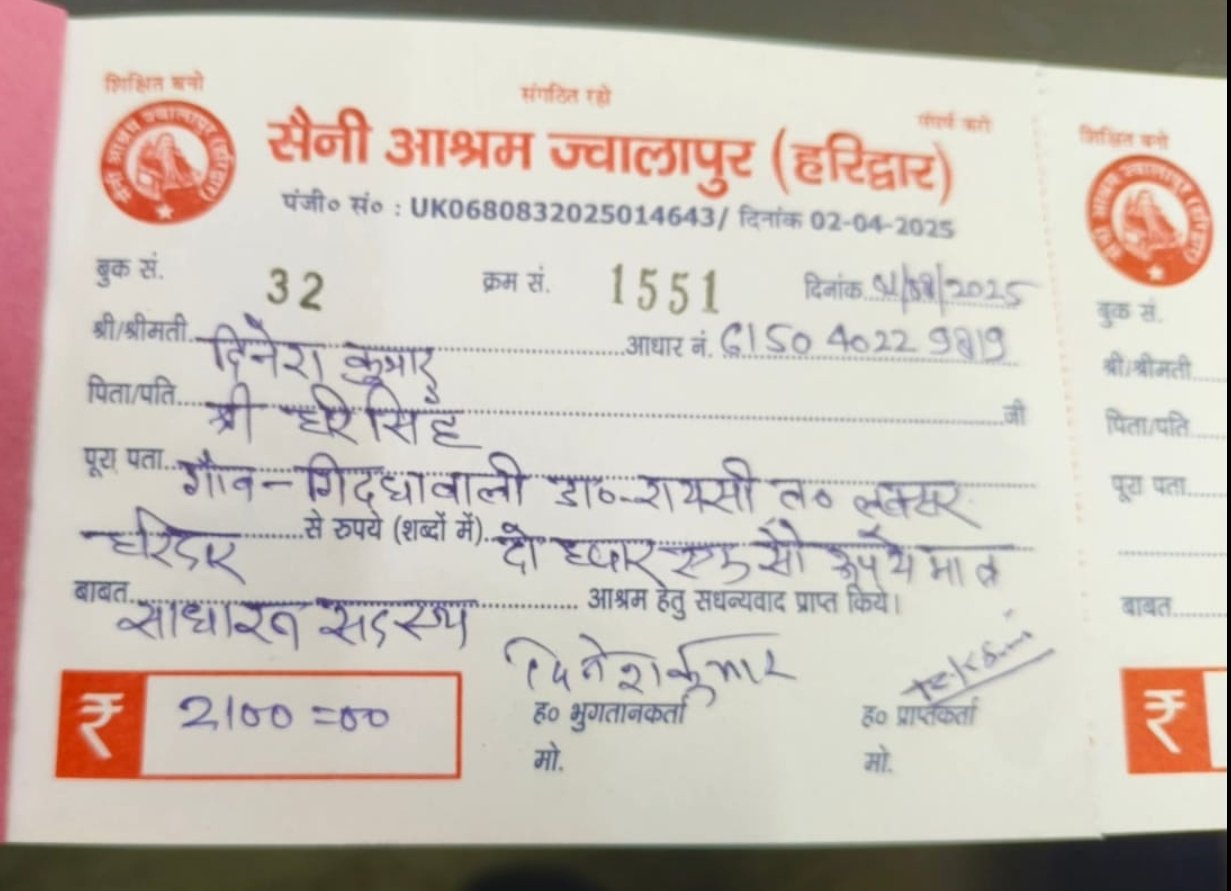 शिक्षित बनो
संगठित रहो
संघर्ष करो
सैनी आश्रम ज्वालापुर (हरिद्वार)
पंजी० सं० : UK0680832025014643/ दिनांक 02-04-2025
बुक सं. 32 क्रम सं. 1551 दिनांक 2025
श्री/श्रीमती दिनेश कुमार आधार नं. 6150 4022 9819
पिता/पति श्री हरि सिंह जी
पूरा पता गाँव - गिद्धावाली डा०-रायसी त० लक्सर
हरिद्वार से रुपये (शब्दों में) दो हजार एक सौ रूपये मात्र
बाबत साधारन सदस्य आश्रम हेतु सधन्यवाद प्राप्त किये।
₹ 2100=00
दिनेश कुमार
ह० भुगतानकर्ता ह० प्राप्तकर्ता
मो. मो.
शिक्षित बनो
बुक सं.
श्री/श्रीमती
पिता/पति
पूरा पता
बाबत
₹